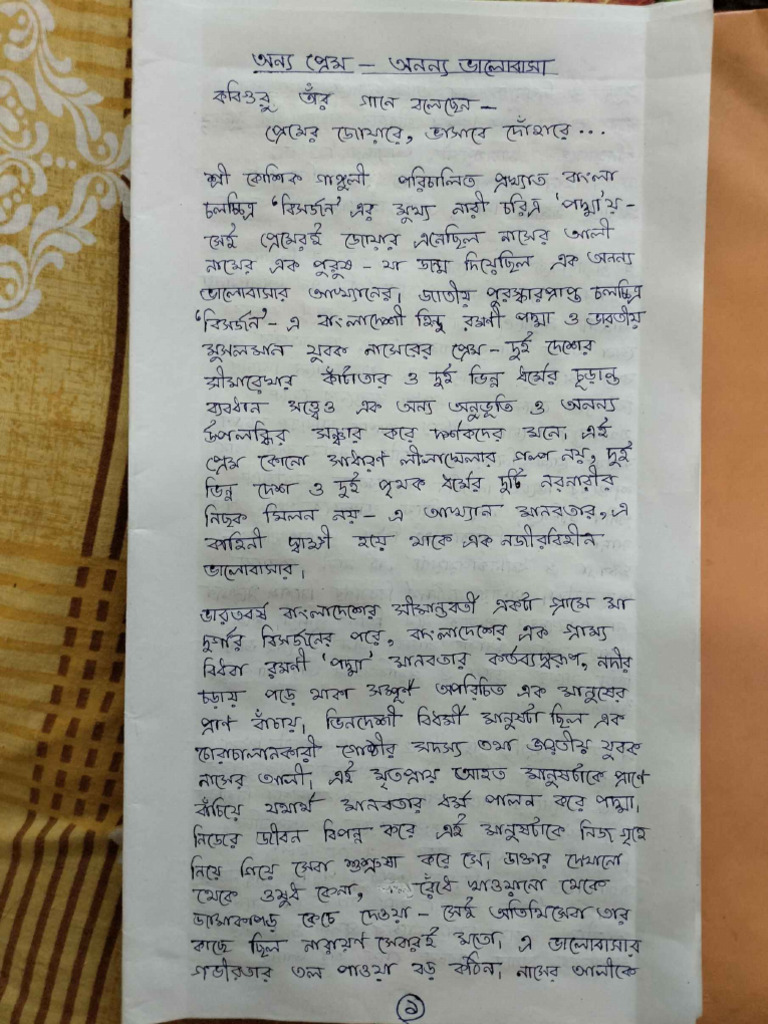 অন্য প্রেম – অনন্য ভালোবাসা
কবিগুরু তাঁর গানে বলেছেন –
প্রেমের জোয়ারে, ভাসাবে দোঁহারে...
শ্রী কৌশিক গাঙ্গুলী পরিচালিত প্রখ্যাত বাংলা
চলচ্চিত্র 'বিসর্জন' এর মুখ্য নারী চরিত্র 'পদ্মা'য় –
সেই প্রেমেরই জোয়ার এনেছিল নাসের আলী
নামের এক পুরুষ – যা জন্ম দিয়েছিল এক অনন্য
ভালোবাসার আখ্যানের। জাতীয় পুরস্কারপ্রাপ্ত চলচ্চিত্র
'বিসর্জন' – এ বাংলাদেশী হিন্দু রমণী পদ্মা ও ভারতীয়
মুসলমান যুবক নাসেরের প্রেম – দুই দেশের
সীমারেখার কাঁটাতার ও দুই ভিন্ন ধর্মের চূড়ান্ত
ব্যবধান সত্ত্বেও এক অন্য অনুভূতি ও অনন্য
উপলব্ধির সঞ্চার করে দর্শকদের মনে। এই
প্রেম কোনো সাধারণ লীলাখেলার গল্প নয়, দুই
ভিন্ন দেশ ও দুই পৃথক ধর্মের দুটি নরনারীর
নিছক মিলন নয় – এ আখ্যান মানবতার, এ
কাহিনী স্বাক্ষী হয়ে থাকে এক নজীরবিহীন
ভালোবাসার।
ভারতবর্ষ বাংলাদেশের সীমান্তবর্তী একটা গ্রামে মা
দুর্গার বিসর্জনের পরে, বাংলাদেশের এক গ্রাম্য
বিধবা রমণী 'পদ্মা' মানবতার কর্তব্যস্বরূপ, নদীর
চড়ায় পড়ে থাকা সম্পূর্ণ অপরিচিত এক মানুষের
প্রাণ বাঁচায়। ভিনদেশী বিধর্মী মানুষটা ছিল এক
চোরাচালানকারী গোষ্ঠীর সদস্য তথা ভারতীয় যুবক
নাসের আলী। এই মৃতপ্রায় আহত মানুষটাকে প্রাণে
বাঁচিয়ে যথার্থ মানবতার ধর্ম পালন করে পদ্মা।
নিজের জীবন বিপন্ন করে এই মানুষটাকে নিজ গৃহে
নিয়ে গিয়ে সেবা শুশ্রুষা করে সে। ডাক্তার দেখানো
থেকে ওষুধ কেনা, রেঁধে খাওয়ানো থেকে
জামাকাপড় কেচে দেওয়া – সেই অতিথিসেবা তার
কাছে ছিল নারায়ণ সেবারই মতো। এ ভালোবাসার
গভীরতার তল পাওয়া বড় কঠিন। নাসের আলীকে
১